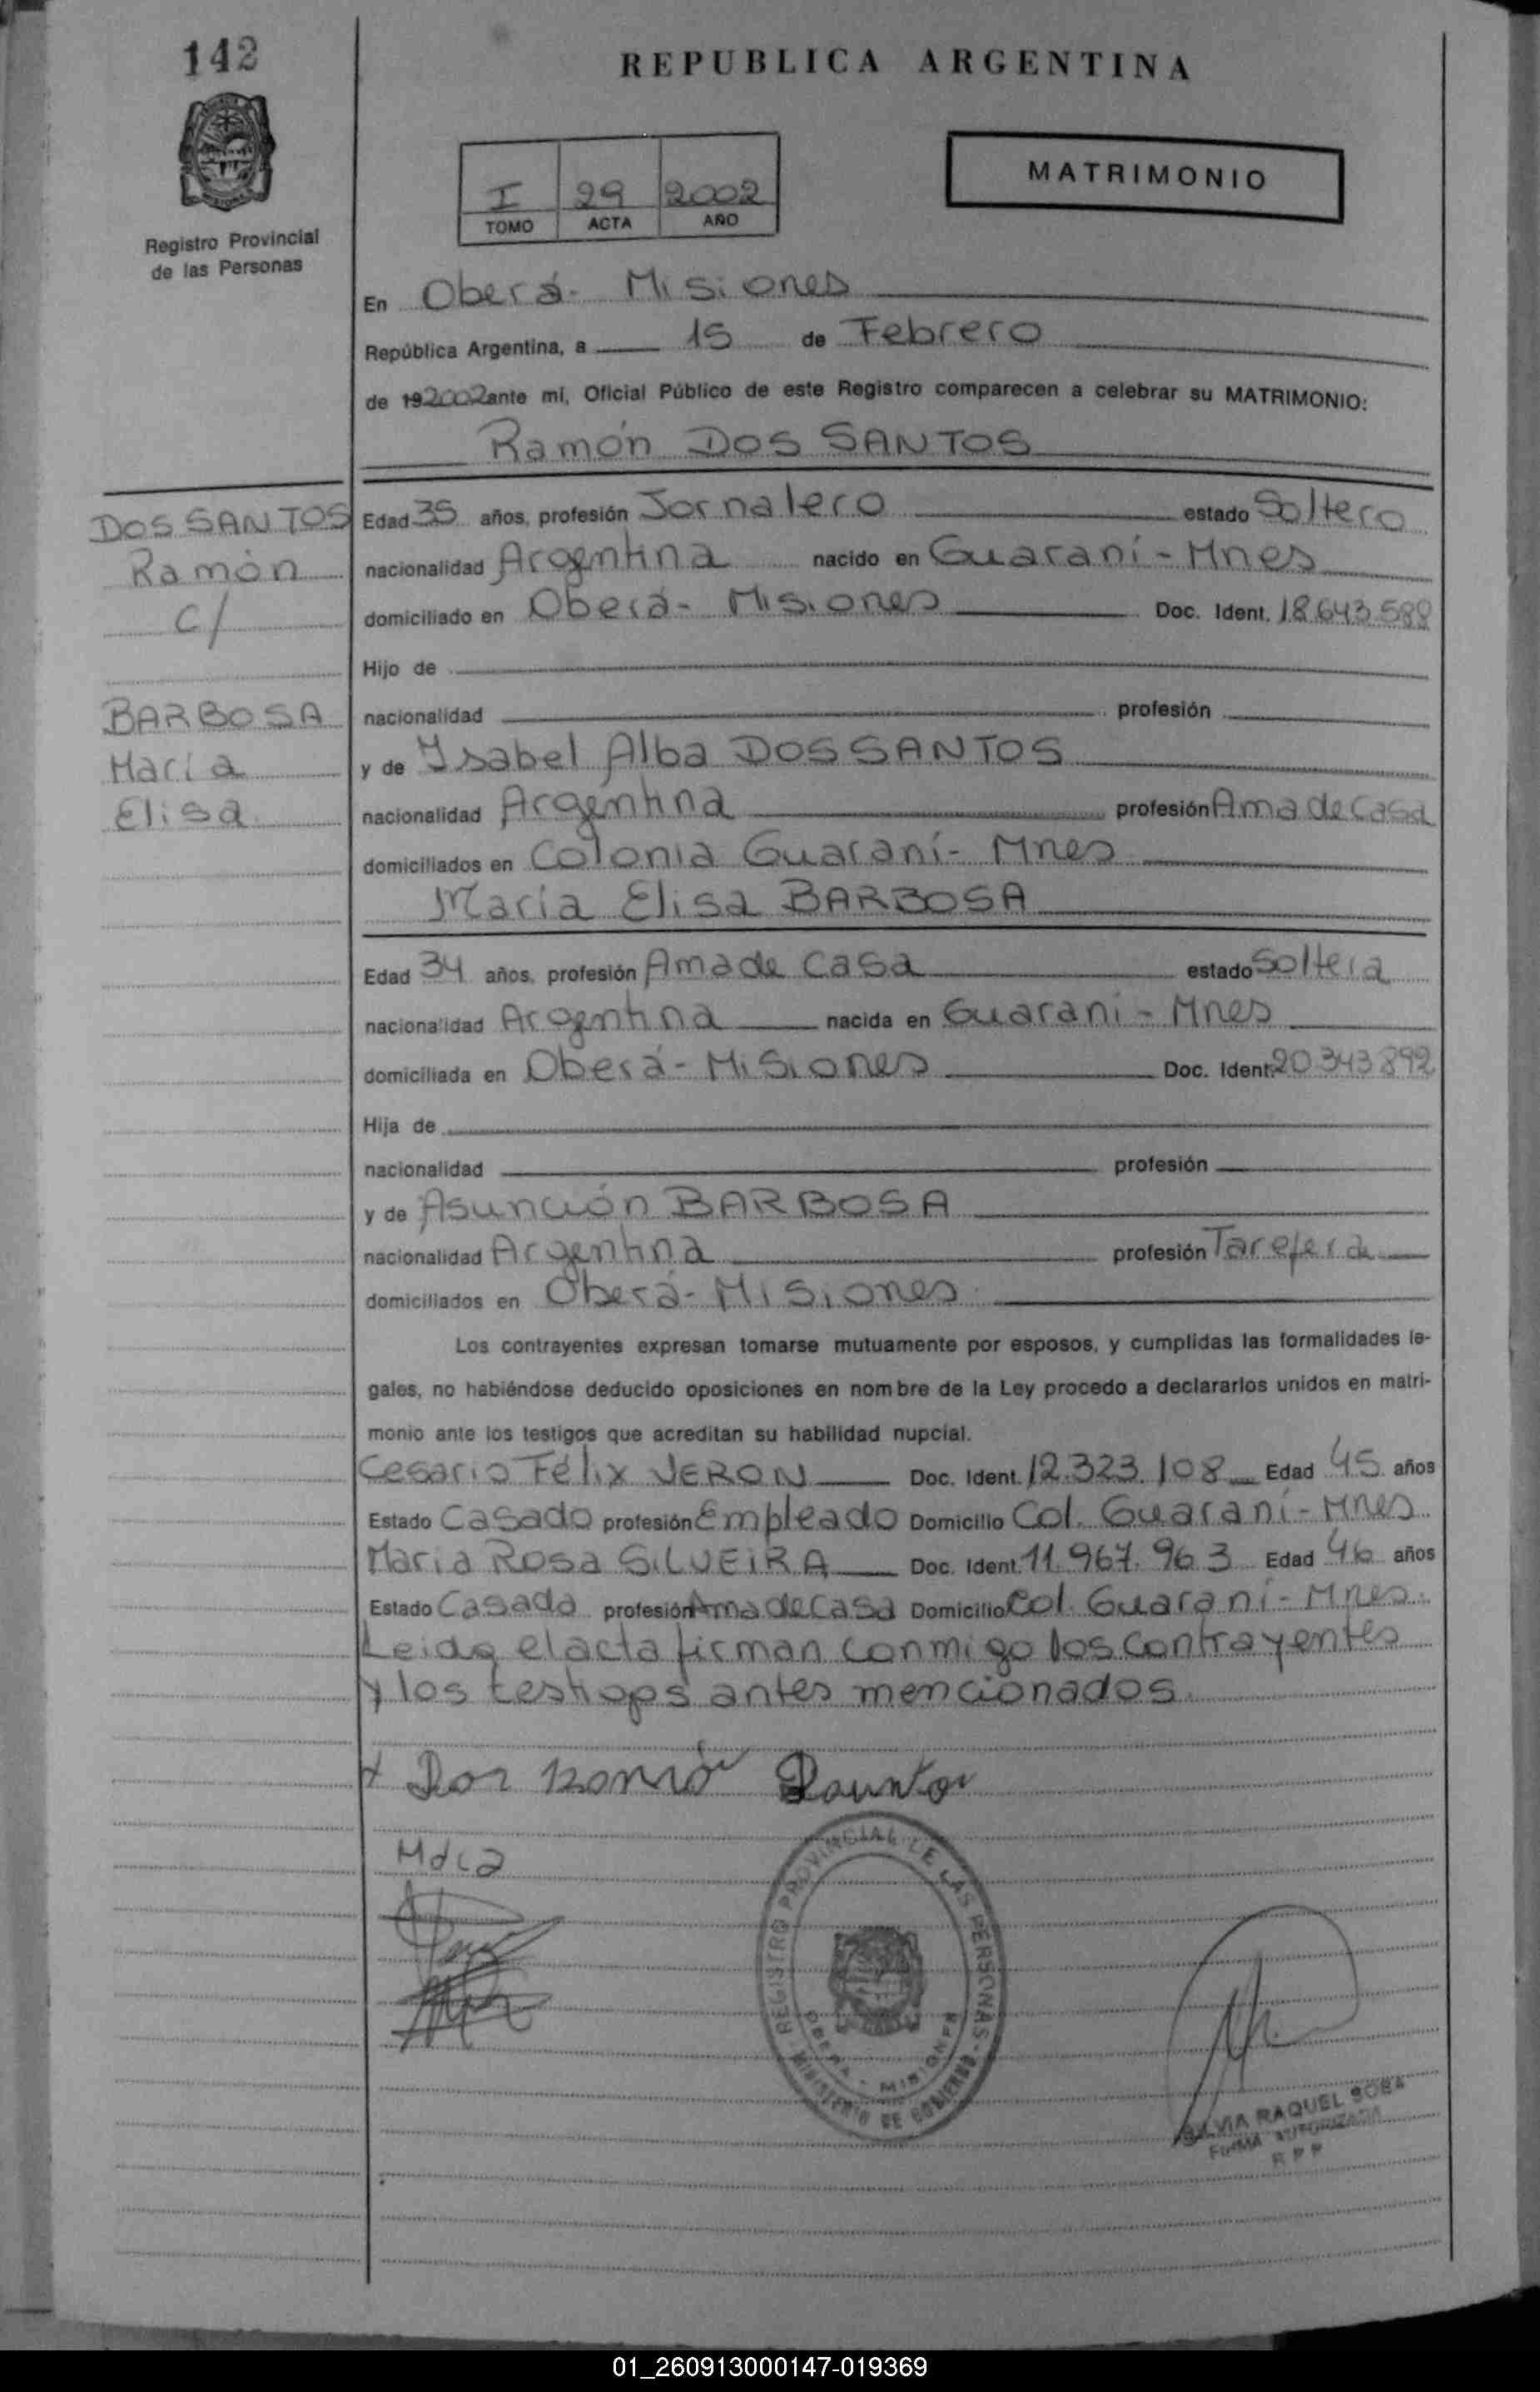 142
REPUBLICA ARGENTINA
Registro Provincial
de las Personas
I 29 2002
TOMO ACTA AÑO
MATRIMONIO
En Oberá - Misiones
República Argentina, a 15 de Febrero
de 192002 ante mí, Oficial Público de este Registro comparecen a celebrar su MATRIMONIO:
Ramón DOS SANTOS
DOS SANTOS
Ramón
C/
BARBOSA
María
Elisa
Edad 35 años, profesión Jornalero estado Soltero
nacionalidad Argentina nacido en Guaraní - Mnes
domiciliado en Oberá - Misiones Doc. Ident. 18.643.588
Hijo de
nacionalidad profesión
y de Ysabel Alba DOS SANTOS
nacionalidad Argentina profesión Ama de Casa
domiciliados en Colonia Guaraní - Mnes
María Elisa BARBOSA
Edad 34 años, profesión Ama de Casa estado Soltera
nacionalidad Argentina nacida en Guaraní - Mnes
domiciliada en Oberá - Misiones Doc. Ident. 20.343.892
Hija de
nacionalidad profesión
y de Asunción BARBOSA
nacionalidad Argentina profesión Tarefera
domiciliados en Oberá - Misiones
Los contrayentes expresan tomarse mutuamente por esposos, y cumplidas las formalidades le-
gales, no habiéndose deducido oposiciones en nombre de la Ley procedo a declararlos unidos en matri-
monio ante los testigos que acreditan su habilidad nupcial.
Cesario Félix VERON Doc. Ident. 12.323.108 Edad 45 años
Estado Casado profesión Empleado Domicilio Col. Guaraní - Mnes
María Rosa SILVEIRA Doc. Ident. 11.967.963 Edad 46 años
Estado Casada profesión Ama de Casa Domicilio Col. Guaraní - Mnes.
Leida el acta firman conmigo los contrayentes
y los testigos antes mencionados.
REGISTRO PROVINCIAL DE LAS PERSONAS
MINISTERIO DE GOBIERNO
OBERA - MISIONES
SILVIA RAQUEL SOSA
FIRMA AUTORIZADA
R P P
01_260913000147-019369